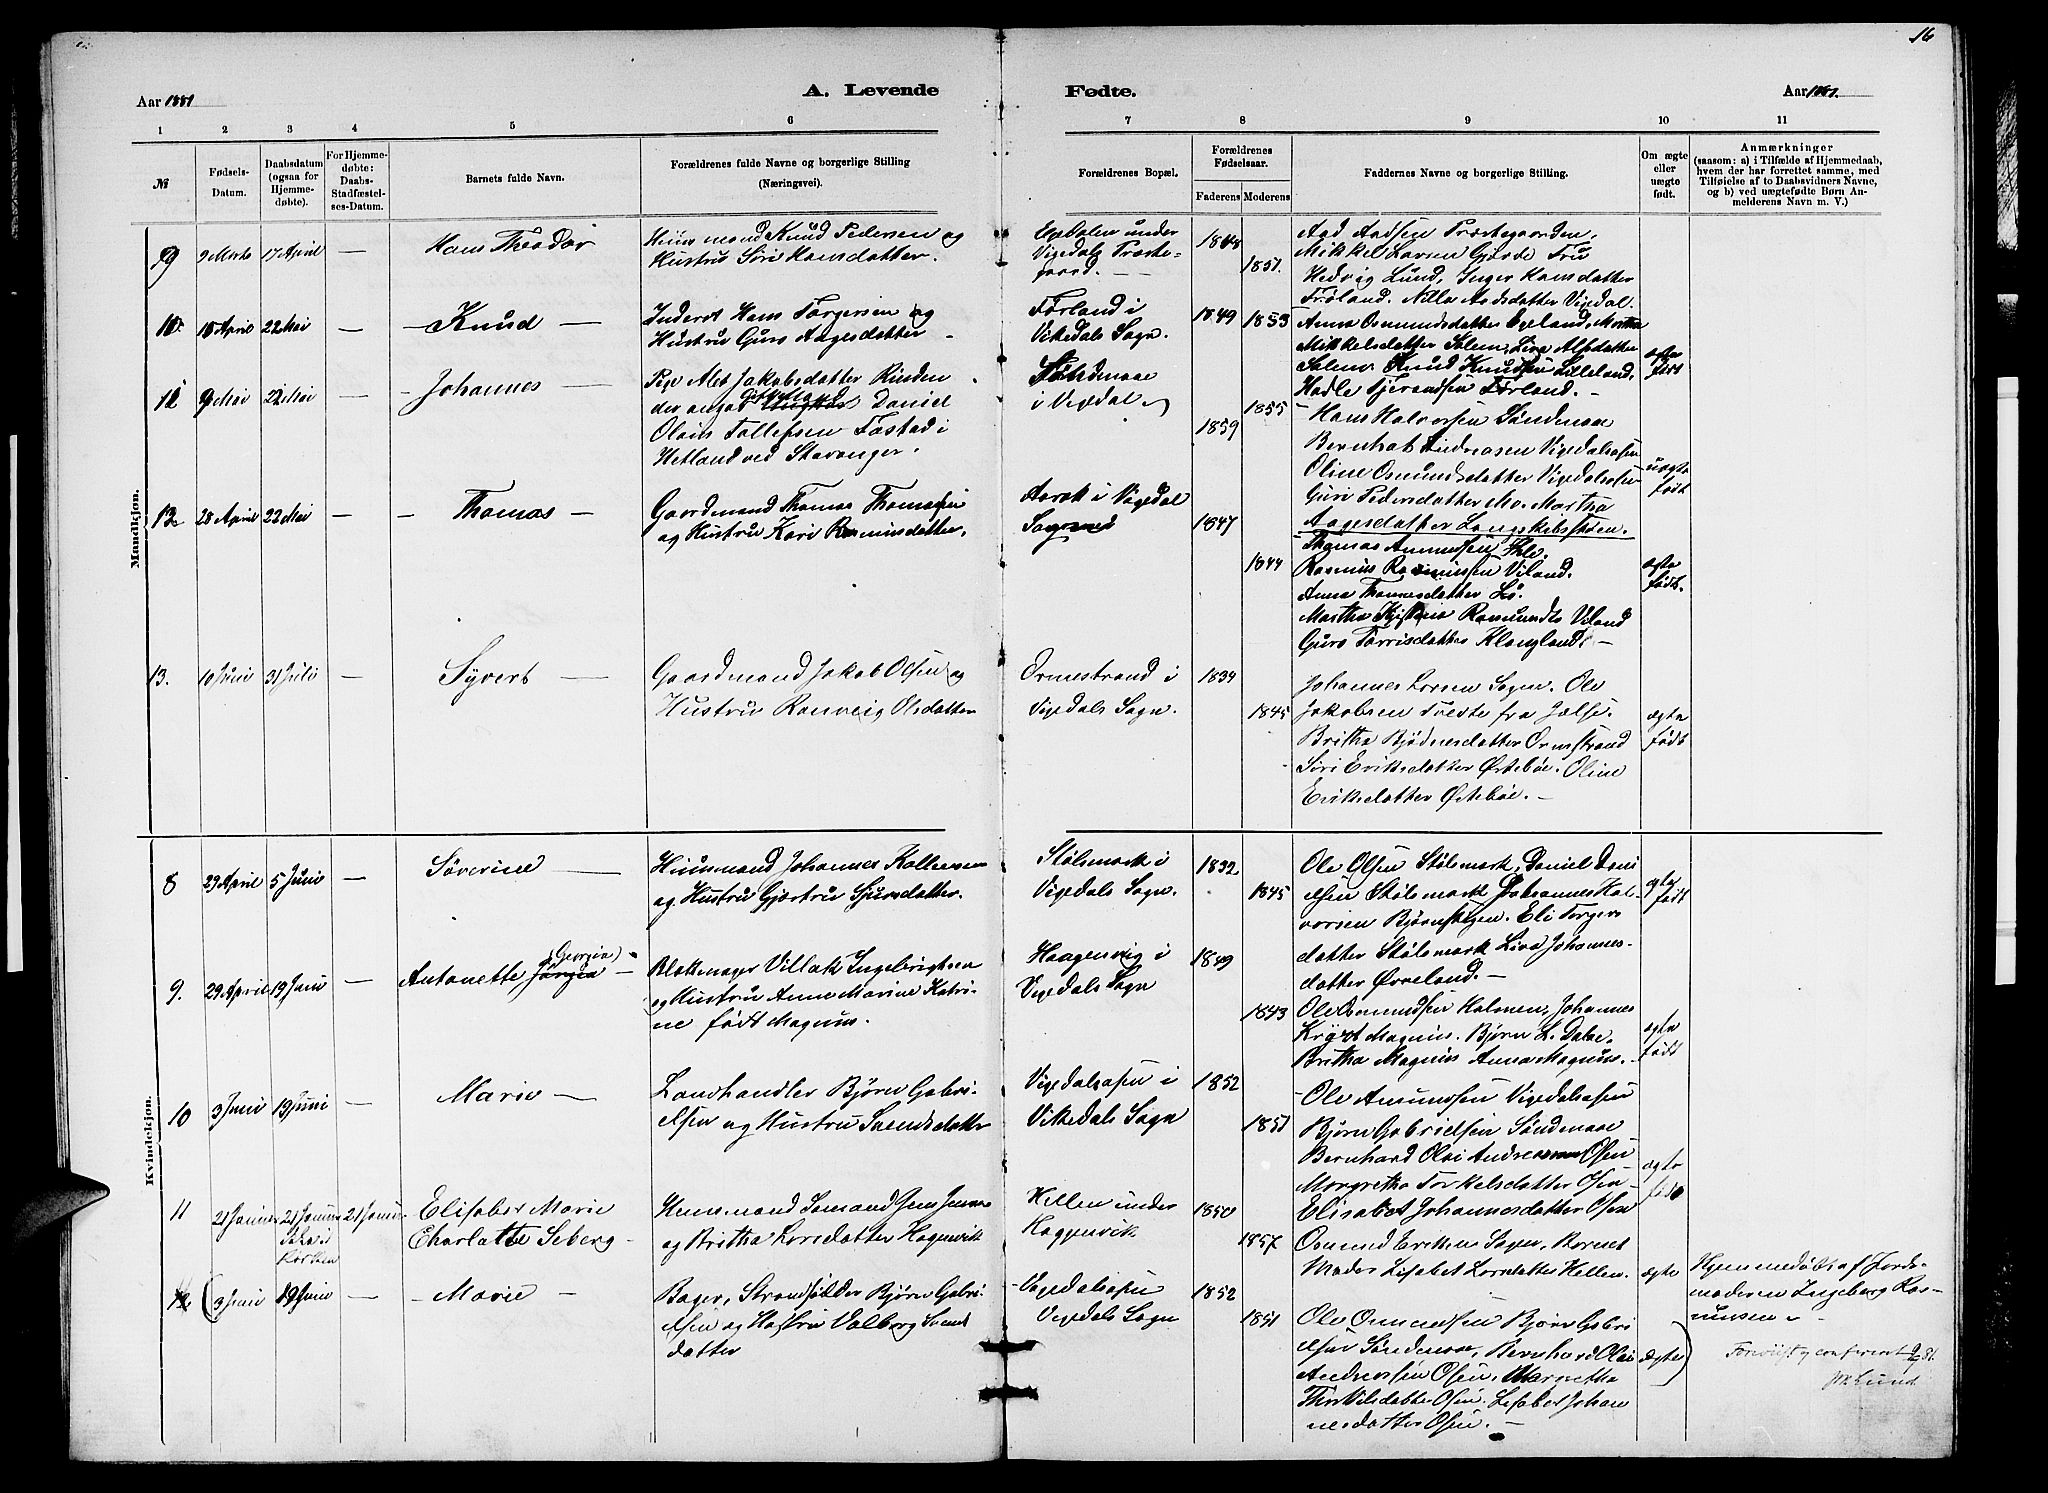 16
Aar 1881
A. Levende
Fødte.
Aar 1881.
1 2 3 4 5 6 7 8 9 10 11
№
Fødsels-
Datum.
Daabsdatum
(ogsaa for
Hjemme-
døbte).
For Hjemme-
døbte:
Daabs-
Stadfæstel-
ses-Datum.
Barnets fulde Navn.
Forældrenes fulde Navne og borgerlige Stilling
(Næringsvei).
Forældrenes Bopæl.
Forældrenes
Fødselsaar.
Faderens
Moderens
Faddernes Navne og borgerlige Stilling.
Om ægte
eller
uægte
født.
Anmærkninger
(saasom: a) i Tilfælde af Hjemmedaab,
hvem der har forrettet samme, med
Tilføielse af to Daabsvidners Navne,
og b) ved uægtefødte Børn An-
melderens Navn m. V.)
Mandkjøn.
9 2 Marts 17 April Hans Theodor
Huusmand Knud Pedersen og
Hustru Siri Hansdatter.
under
Vigedals Præste-
gaard.
1848
1851.
Aad Aadsen Præstegaarden,
Mikkel Larsen Gjerde Fru
Hedvig Lund, Inger Hansdatter
Frøland. Nilla Aadsdatter Vigedal.
10 10 April 22 Mai — Knud —
Inderst Hans Torgersen og
Hustru Guro Aagesdatter
Førland i
Vikedals Sogn.
1849 1853
Anna Osmundsdatter Opeland, Martha
Mikkelsdatter Salem, Liva Alfsdatter
Salem Knud Knudsen Lilleland,
Hadle Tjerandsen Førland. —
ægte
født
11 9 Mai 22 Mai — Johannes —
Pige Jakobsdatter Rinden
Daniel
Olais Tollefsen Fastad i
Hetland ved Stavanger.
Søndenaae
i Vigedal
1859
1855
Hans Halvorsen Søndenaae
Bernhat Andreasen Vigedalsøsen
Oline Osmundsdatter Vigedalsøsen
Guri Pedersdatter Mo. Martha
Aagesdatter Langskibstøden.
uægte
født
12 28 April 22 Mai — Thomas —
Gaardmand Thomas Thomasen
og Hustru Kari Rasmusdatter.
i Vigedal
Sogn
1847
1844
Thomas Amundsen
Rasmus Rasmussen Viland.
Anna Thomasdatter
Martha Kristine Rasmundsdt Viland
Guro Torrisdatter Klungland. —
ægte
født.
13. 10 Juni 31 Juli — Syvert —
Gaardmand Jakob Olsen og
Hustru Ranveig Olsdatter
Ormestrand i
Vigedals Sogn.
1839
1845
Johannes Larsen Sagen. Ole
Jakobsen Tveite fra Jælse.
Britha Bjødnesdatter Ormstrand
Siri Eriksdatter Østebøe. Oline
Eriksdatter Østebøe. —
ægte
født
Kvindekjøn.
8 29 April 5 Juni — Søverine —
Huusmand Johannes Kallesen
og Hustru Gjertru Sjursdatter.
Stølsmark i
Vigedals Sogn.
1832
1845
Ole Olsen Stølsmark, Daniel Dani
elsen Stølsmark Johannes Hal-
vorsen Bjørnstigen. Eli Torgers
datter Stølsmark Liva Johannes-
datter Øvreland. —
ægte
født
9. 29 April 19 Juni — Antonette Jørgea (Georgia) —
Blokkmager Villak Ingebrigtsen
og Hustru Anne Marine Katri-
ne født Magnus.
Haagenvig i
Vigedals Sogn
1849
1843
Ole Osmundsen Halmen, Johannes
Magnus. Bjørn L. Dalse,
Britha Magnus Anna Magnus.
ægte
født
10 3 Juni 19 Juni — Marie —
Landhandler Bjørn Gabri-
elsen og Hustru Svendsdatter
Vigedalsøsen i
Vikedals Sogn
1852
1851
Ole Amundsen Vigedalsøsen
Bjørn Gabrielsen Søndenaae
Bernhard Olai Andreassen Osen
Margretha Torkelsdatter Osen
Elisabet Johannesdatter Osen
ægte
født
11 21 Januar 21 Januar 21 Januar
Elisabet Marie
Charlotte Seberg —
Huusmand
og Britha Larsdatter Hagenvik
Hellen under
Haggenvik
1850
1857
Osmund Eriksen Sagen, Barnets
Moder Lisabet Larsdatter Hellen.
ægte
Hjemmedøbt af Jords-
moderen Ingeborg Ras-
mussen.
12 (3 Juni 19 Juni — Marie —
Bager, Strandsidder Bjørn Gabri-
elsen og Hustru Valborg Svends
datter
Vigedalsøsen
Vigedals Sogn
1852
1851
Ole Osmundsen Bjørn Gabri
elsen Søndenaae, Bernhard Olai
Andreassen Osen, Margretha
Thorkelsdatter Osen. Lisabet Johan
nesdatter Osen. —
ægte)
Foreviist og confereret 2/9 81.
Lund